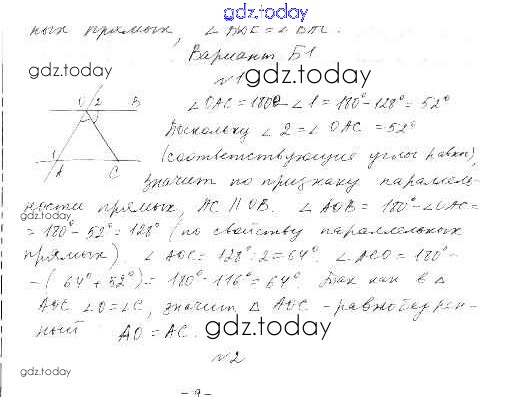 gdz.today
ных прямых, ∠ =∠
Вариант Б1
№1
gdz.today
gdz.today
O 2 B
1 A C
∠OAC = 180° - ∠1 = 180° - 128° = 52°
Поскольку ∠2 = ∠OAC = 52°
(соответствующие углы равны),
значит по признаку параллель-
ности прямых, AC || OB. ∠AOB = 180° - ∠OAC =
gdz.today
= 180° - 52° = 128° (по свойству параллельных
прямых). ∠AOC = 128° : 2 = 64°. ∠ACO = 180° -
- (64° + 52°) = 180° - 116° = 64°. Так как в △
AOC ∠O = ∠C, значит △ AOC - равнобедрен-
ный AO = AC.
gdz.today
№2
gdz.today
- 9 -